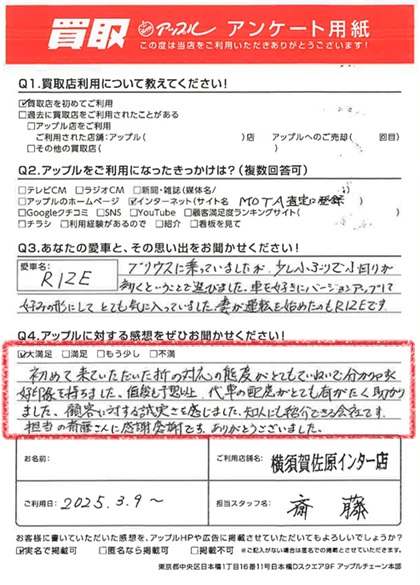 買取 アップル アンケート用紙
この度は当店をご利用いただきありがとうございます!
Q1.買取店利用について教えてください!
☑買取店を初めてご利用
□過去に買取店をご利用されたことがある
□アップル店をご利用
ご利用された店舗:アップル( )店 アップルへのご売却( 回目)
□その他の買取店( )
Q2.アップルをご利用になったきっかけは?(複数回答可)
□テレビCM □ラジオCM □新聞・雑誌(媒体名/ )
□アップルのホームページ ☑インターネット(サイト名 MOTA査定の登録 )
□Googleクチコミ □SNS □YouTube □顧客満足度ランキングサイト( )
□チラシ □利用経験があるので □紹介 □看板を見て
Q3.あなたの愛車と、その思い出をお聞かせください!
愛車名: RIZE プリウスに乗っていましたが、少し小ぶりで小回りが
きくということで選びました。車を好きにバージョンアップして
好みの形にしてとても気に入っていました。妻が運転を始めたのもRIZEです
Q4.アップルに対する感想をぜひお聞かせください!
☑大満足 □満足 □もう少し □不満
初めて来ていただいた折の対応の態度がとてもていねいで分かりやすく
好印象を持ちました。値段も予想以上、代車の配慮がとても有がたく助かり
ました。顧客に対する誠実さを感じました。知人にも紹介できる会社です。
担当の斉藤さんに感謝感謝です。ありがとうございました。
お名前:
ご利用店舗名: 横須賀佐原インター店
ご利用日: 2025.3.9〜
担当スタッフ名: 斎藤
お客様に書いていただいた感想を、アップルHPや広告に掲載させていただいてもよろしいでしょうか?
☑実名で掲載可 □匿名なら掲載可 □掲載不可 ※ご記入がない場合は匿名での掲載とさせていただきます。
東京都中央区日本橋1丁目16番11号日本橋Dスクエア9F アップルチェーン本部